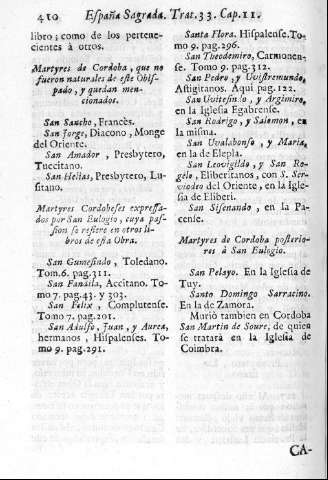 410 España Sagrada. Trat.33. Cap.11.
libro; como de los pertene-
cientes à otros.
Martyres de Cordoba, que no
fueron naturales de este Obis-
pado, y quedan men-
cionados.
San Sancho, Francès.
San Jorge, Diacono, Monge
del Oriente.
San Amador, Presbytero,
Tuccitano.
San Helias, Presbytero, Lu-
sitano.
Martyres Cordobeses expressa-
dos por San Eulogio, cuya pas-
sion se refiere en otros li-
bros de esta Obra.
San Gumesindo, Toledano.
Tom.6. pag.311.
San Fandila, Accitano. To-
mo 7. pag.43. y 303.
San Felix, Complutense.
Tomo 7. pag.201.
San Adulfo, Juan, y Aurea,
hermanos, Hispalenses. To-
mo 9. pag.291.
Santa Flora. Hispalense. To-
mo 9. pag.296.
San Theodemiro, Carmonen-
se. Tomo 9. pag.312.
San Pedro, y Uvistremundo,
Astigitanos. Aqui pag.122.
San Uvitesindo, y Argimiro,
en la Iglesia Egabrense.
San Rodrigo, y Salomon, en
la misma.
San Uvalabonso, y Maria,
en la de Elepla.
San Leovigildo, y San Ro-
gelo, Eliberitanos, con S. Ser-
viodeo del Oriente, en la Igle-
sia de Eliberi.
San Sisenando, en la Pa-
cense.
Martyres de Cordoba posterio-
res à San Eulogio.
San Pelayo. En la Iglesia de
Tuy.
Santo Domingo Sarracino.
En la de Zamora.
Muriò tambien en Cordoba
San Martin de Soure, de quien
se tratarà en la Iglesia de
Coimbra.
CA-